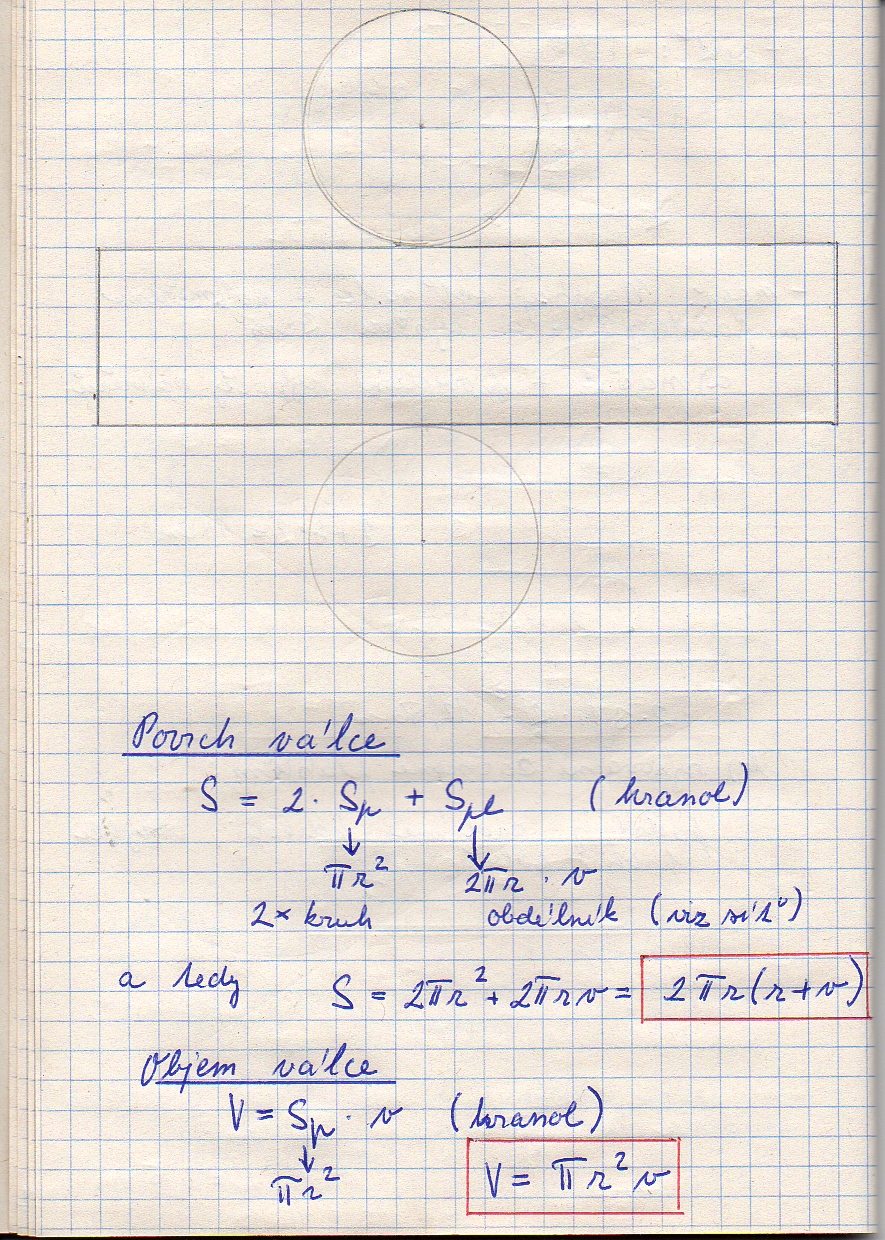 Povrch válce
S = 2 · Sp + Spl (hranol)
↓ ↓
πr² 2πr · v
2x kruh obdélník (viz síť)
a tedy S = 2πr² + 2πrv = 2πr(r+v)
Objem válce
V = Sp · v (hranol)
↓
πr² V = πr²v